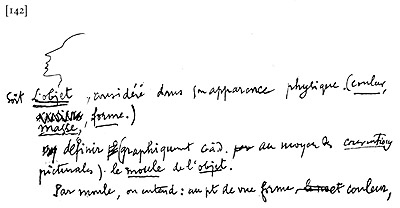 [142]
Soit l'objet, considéré dans son apparence physique. (couleur,
masse, forme.)
définir (graphiquement càd. au moyen de conventions
picturales). le moule de l'objet.
Par moule, on entend : au pt de vue forme et couleur,